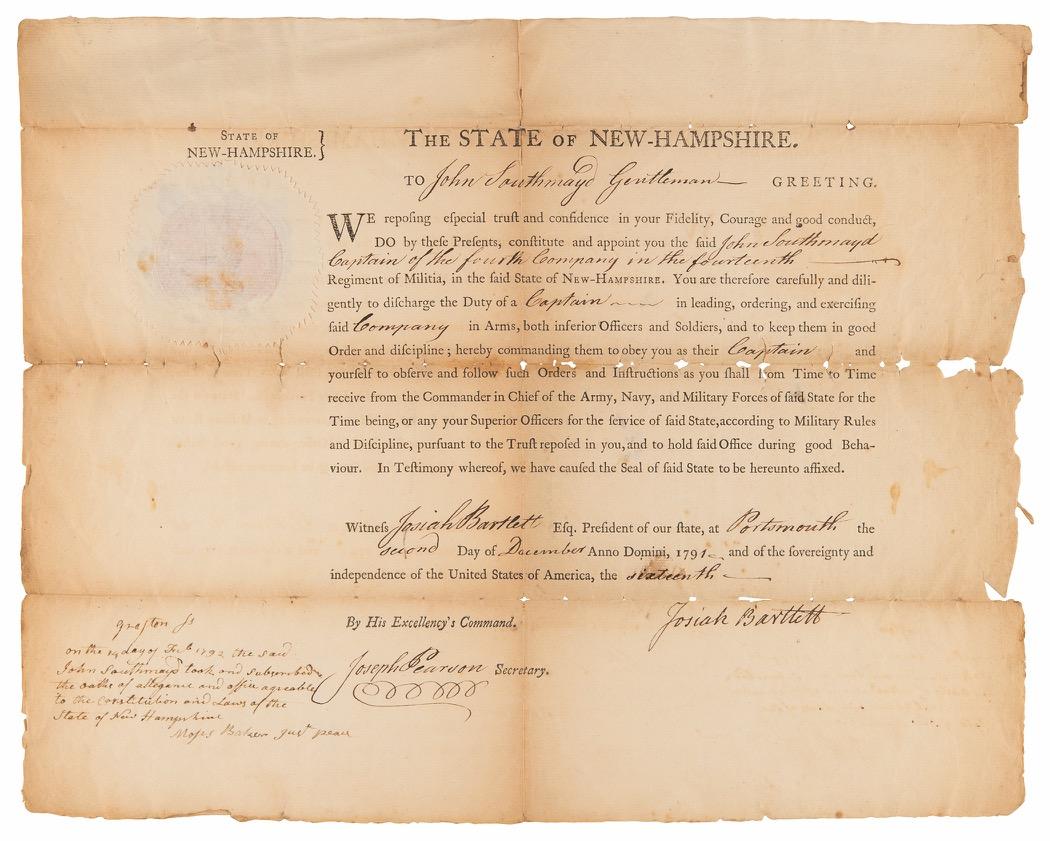 STATE OF
NEW-HAMPSHIRE.}
THE STATE OF NEW-HAMPSHIRE.
TO John Southmayd Gentleman— GREETING.
WE repoſing eſpecial truſt and confidence in your Fidelity, Courage and good conduct,
DO by theſe Preſents, conſtitute and appoint you the ſaid John Southmayd
Captain of the fourth Company in the fourteenth —
Regiment of Militia, in the ſaid State of NEW-HAMPSHIRE. You are therefore carefully and dili-
gently to diſcharge the Duty of a Captain in leading, ordering, and exerciſing
ſaid Company in Arms, both inferior Officers and Soldiers, and to keep them in good
Order and diſcipline; hereby commanding them to obey you as their Captain and
yourſelf to obſerve and follow ſuch Orders and Inſtructions as you ſhall from Time to Time
receive from the Commander in Chief of the Army, Navy, and Military Forces of ſaid State for the
Time being, or any your Superior Officers for the ſervice of ſaid State, according to Military Rules
and Diſcipline, purſuant to the Truſt repoſed in you, and to hold ſaid Office during good Beha-
viour. In Teſtimony whereof, we have cauſed the Seal of ſaid State to be hereunto affixed.
Witneſs Josiah Bartlett Eſq. Preſident of our ſtate, at Portsmouth the
second Day of December Anno Domini, 1791 and of the ſovereignty and
independence of the United States of America, the sixteenth —
By His Excellency's Command.
Josiah Bartlett
Joseph Pearson Secretary.
Grafton ſs
on the 14 day of Feb 1792 the said
John Southmayd took and subscribed
the oaths of allegance and office agreeable
to the Constitution and Laws of the
State of New Hampshire
Moſes Baker just peace